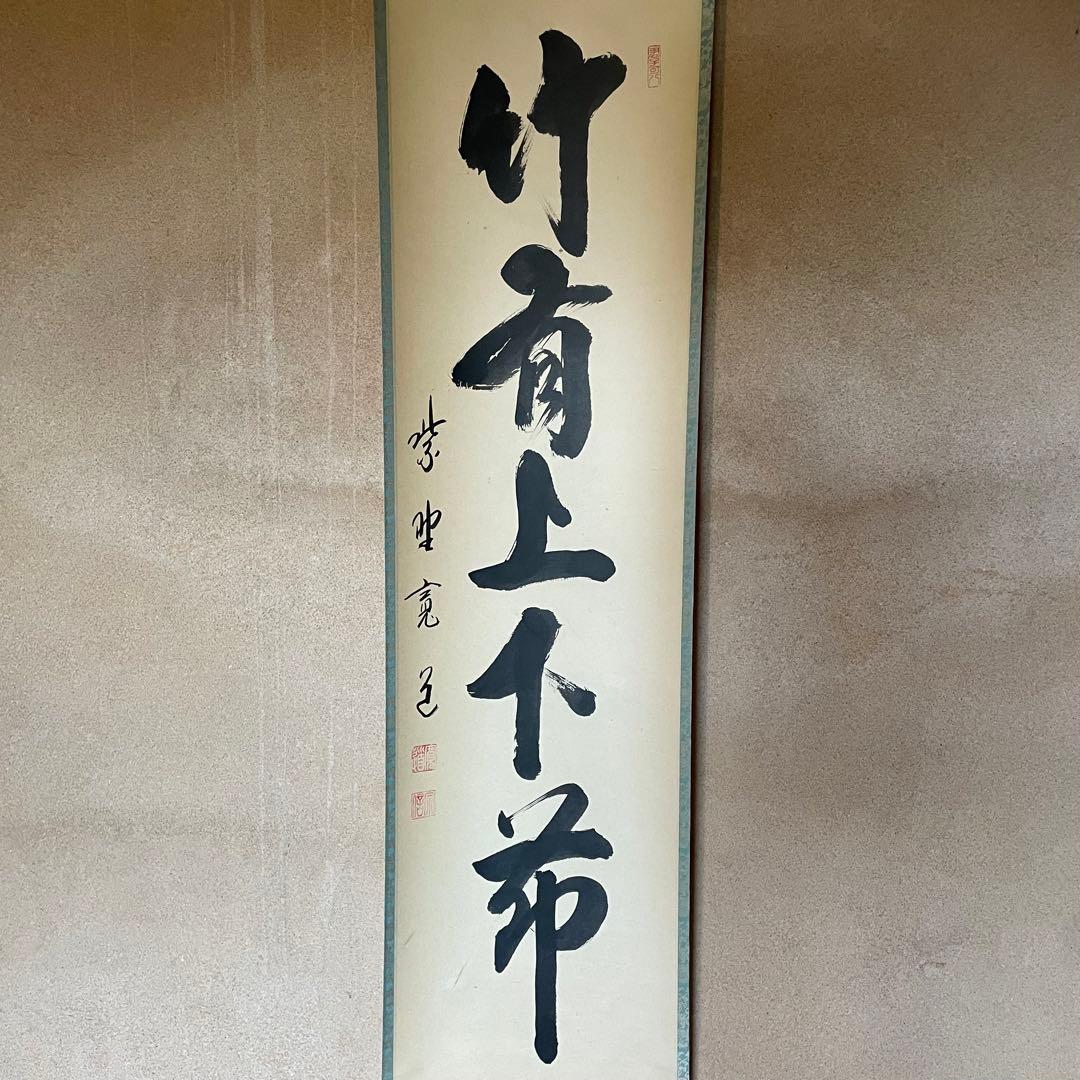 竹有上下節
紫野寛道